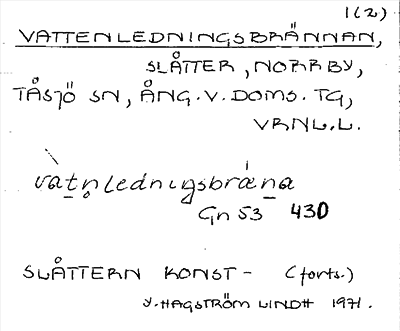 1(2)
VATTENLEDNINGSBRÄNNAN,
SLÅTTER, NORRBY,
TÅSJÖ SN, ÅNG. V. DOMS. TG,
VRNL.L.
vatnledningsbræna
Gn 53 430
SLÅTTERN KONST- (forts.)
Y. HAGSTRÖM LINDH 1971.